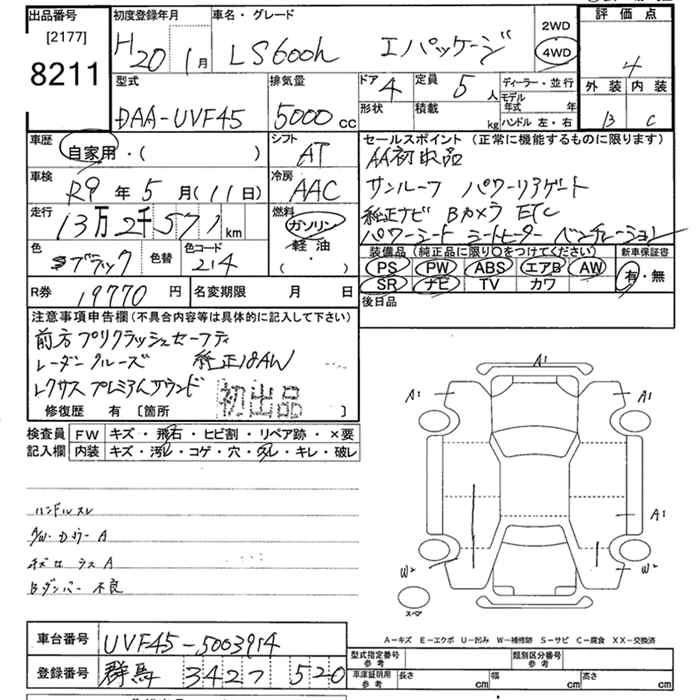 出品番号 初度登録年月 車名・グレード 評価点
[2177] H20 1月 LS600h Iパッケージ 2WD 4WD 4
8211 外装 内装
B C
型式 排気量 ドア 4 定員 5人 ディーラー・並行
DAA-UVF45 5000cc 形状 積載 kg モデル年式 年
ハンドル 左・右
車歴 シフト セールスポイント (正常に機能するものに限ります)
自家用・( ) AT AA初出品
車検 冷房 サンルーフ パワーリアゲート
R9年5月(11日) AAC 純正ナビ Bカメラ ETC
走行 燃料 パワーシート シートヒーター ベンチレーション
13万2千571km ガソリン
軽油
( ・ )
色 色替 色コード 装備品 (純正品に限り○をつけてください) 新車保証書
ブラック 214 PS PW ABS エアB AW 有・無
SR ナビ TV カワ
R券 19770円 名変期限 月 日 後日品
注意事項申告欄(不具合内容等は具体的に記入して下さい)
前方プリクラッシュセーフティ
レーダークルーズ 純正18AW
レクサスプレミアムサウンド
初出品
修復歴 有 [箇所 ]
検査員 FW キズ・飛石・ヒビ割・リペア跡・×要
記入欄 内装 キズ・汚レ・コゲ・穴・スレ・キレ・破レ
ハンドルスレ
A
A
Bダンパー不良
A1
A1 A1
A1
W2 W2
スペア
A-キズ E-エクボ U-凹み W-補修跡 S-サビ C-腐食 XX-交換済
車台番号 UVF45-5003914
登録番号 群馬 342 520
型式指定番号 参考 類別区分番号 参考
車庫証明用 参考 長さ cm 幅 cm 高さ cm